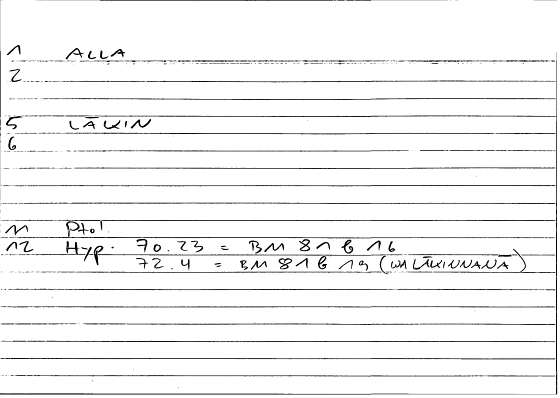 1 ALLA
2
5 LĀKIN
6
11 Ptol.
12 Hyp. 70.23 = BM 81 b 16
72.4 = BM 81 b 19 (WALĀKINNANĀ)